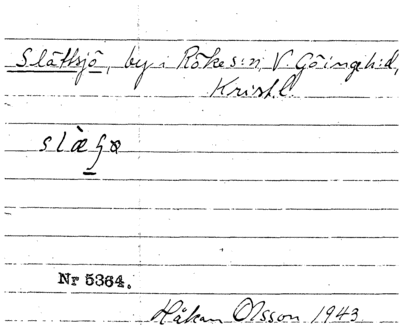 Slättsjö, by i Rökes:n, V. Göingeh:d,
Kristl.
slὰɧɷ
Nr 5364.
Håkan Olsson 1943